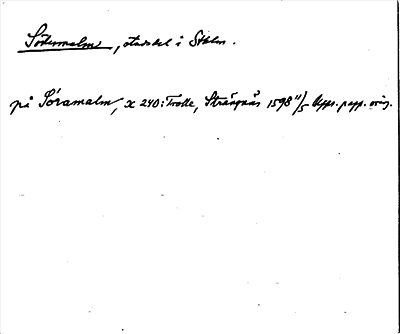 Södermalm, stadsdel i Sthlm.
på Söramalm, x 240: Trolle, Strängnäs 1598 11/5 Upps. papp. orig.